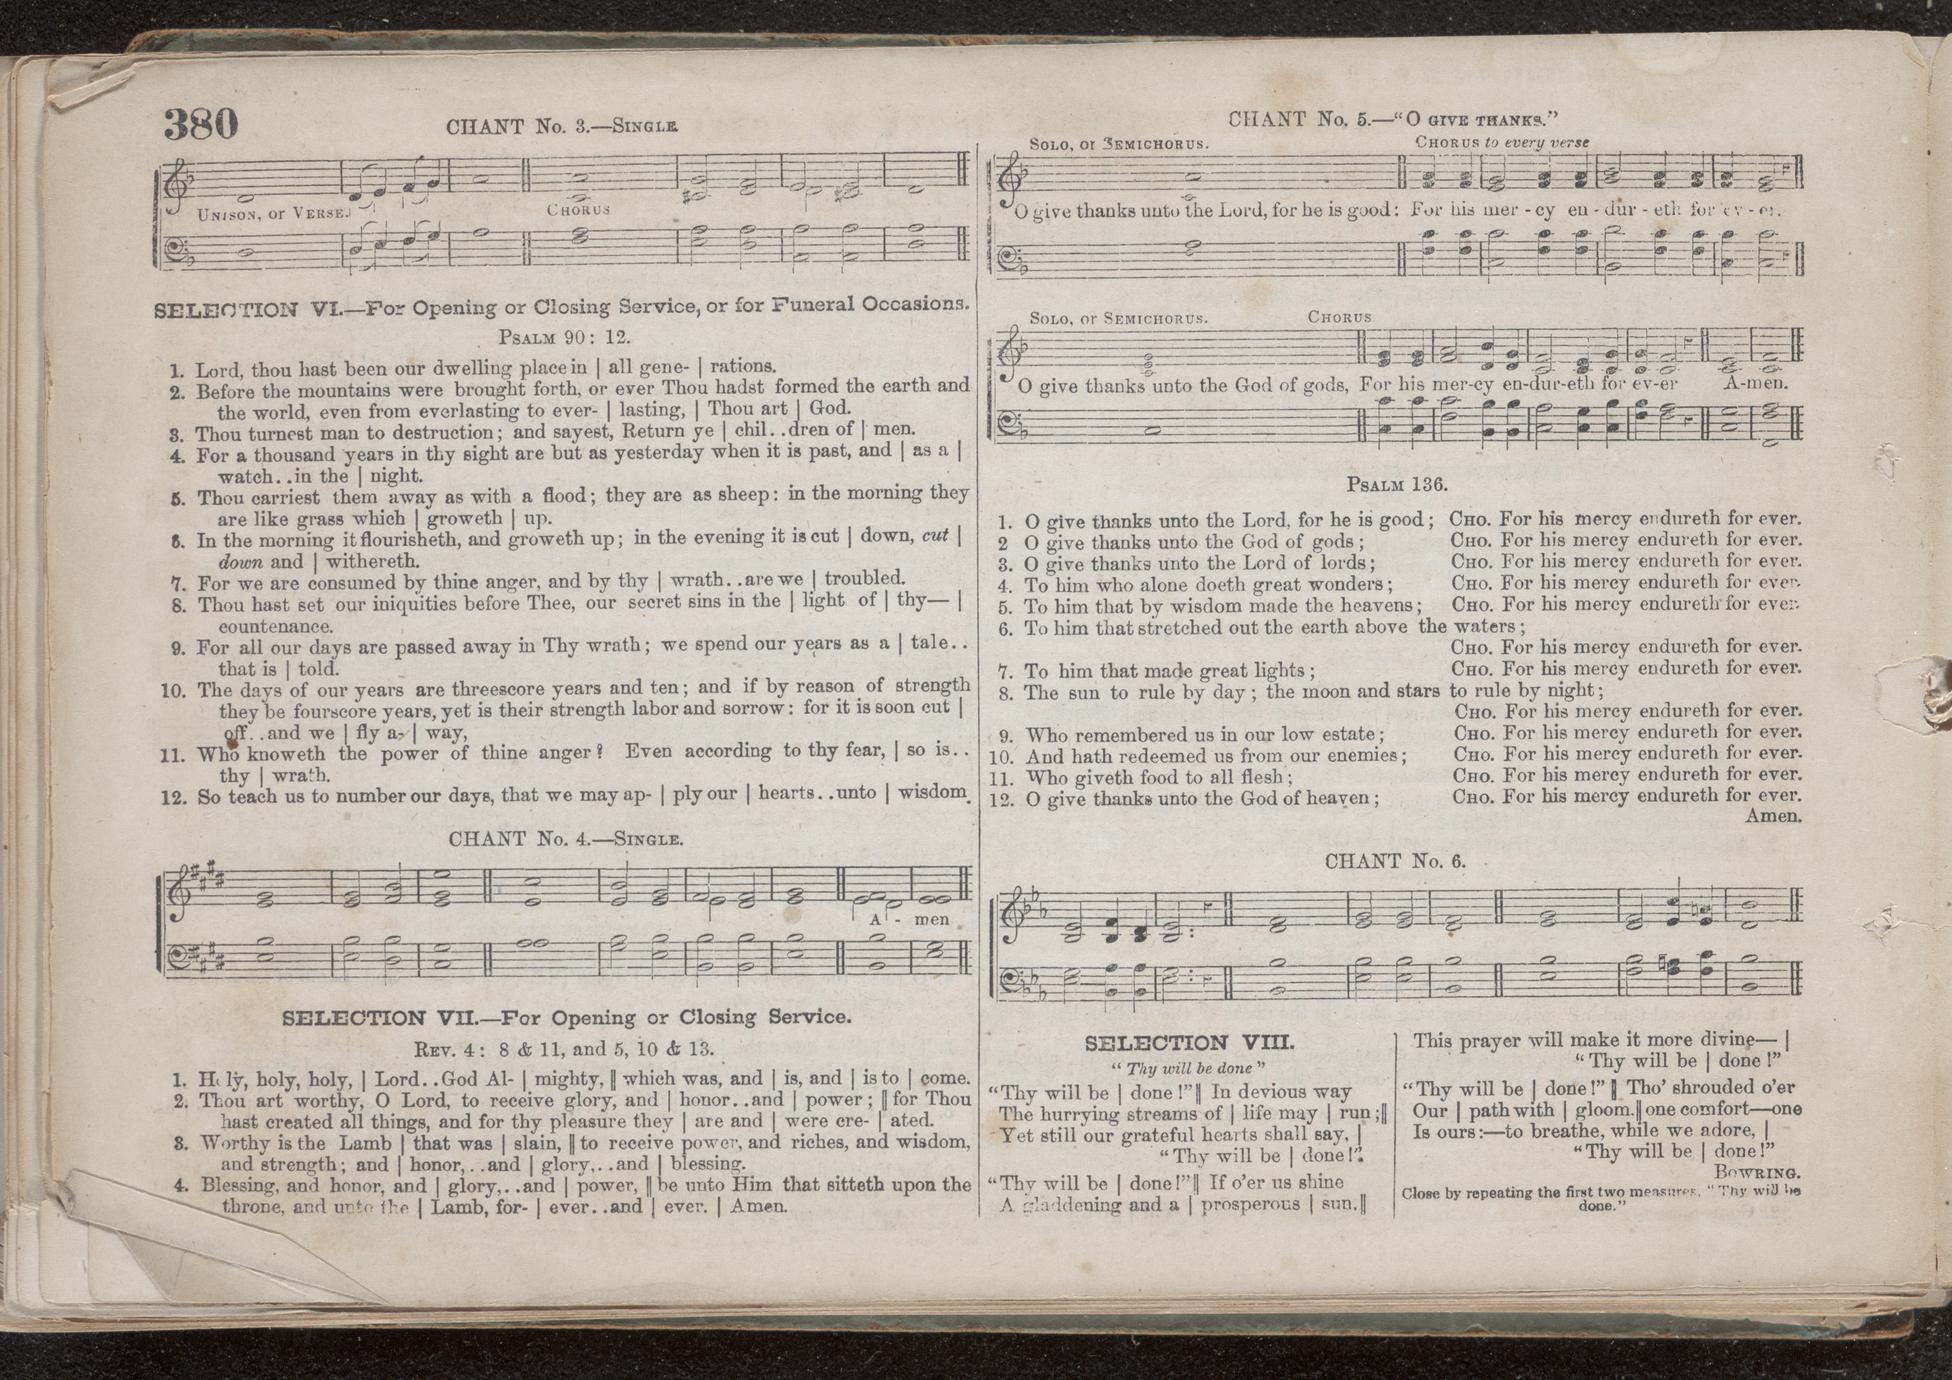 380
CHANT No. 3.—SINGLE
UNISON, or VERSE.
CHORUS
SELECTION VI.—For Opening or Closing Service, or for Funeral Occasions.
PSALM 90: 12.
1. Lord, thou hast been our dwelling place in | all gene- | rations.
2. Before the mountains were brought forth, or ever Thou hadst formed the earth and
the world, even from everlasting to ever- | lasting, | Thou art | God.
3. Thou turnest man to destruction; and sayest, Return ye | chil. .dren of | men.
4. For a thousand years in thy sight are but as yesterday when it is past, and | as a |
watch. .in the | night.
5. Thou carriest them away as with a flood; they are as sheep: in the morning they
are like grass which | groweth | up.
6. In the morning it flourisheth, and groweth up; in the evening it is cut | down, cut |
down and | withereth.
7. For we are consumed by thine anger, and by thy | wrath. .are we | troubled.
8. Thou hast set our iniquities before Thee, our secret sins in the | light of | thy— |
countenance.
9. For all our days are passed away in Thy wrath; we spend our years as a | tale. .
that is | told.
10. The days of our years are threescore years and ten; and if by reason of strength
they be fourscore years, yet is their strength labor and sorrow: for it is soon cut |
off. .and we | fly a- | way,
11. Who knoweth the power of thine anger? Even according to thy fear, | so is. .
thy | wrath.
12. So teach us to number our days, that we may ap- | ply our | hearts. .unto | wisdom.
CHANT No. 4.—SINGLE.
A - men
SELECTION VII.—For Opening or Closing Service.
REV. 4: 8 & 11, and 5, 10 & 13.
1. Holy, holy, holy, | Lord. .God Al- | mighty, || which was, and | is, and | is to | come.
2. Thou art worthy, O Lord, to receive glory, and | honor. .and | power; || for Thou
hast created all things, and for thy pleasure they | are and | were cre- | ated.
3. Worthy is the Lamb | that was | slain, || to receive power, and riches, and wisdom,
and strength; and | honor,. .and | glory,. .and | blessing.
4. Blessing, and honor, and | glory,. .and | power, || be unto Him that sitteth upon the
throne, and unto the | Lamb, for- | ever. .and | ever. | Amen.
CHANT No. 5.—"O GIVE THANKS."
SOLO, or SEMICHORUS. CHORUS to every verse
O give thanks unto the Lord, for he is good: For his mer - cy en - dur - eth for ev - er.
SOLO, or SEMICHORUS. CHORUS
O give thanks unto the God of gods, For his mer-cy en-dur-eth for ev-er A-men.
PSALM 136.
1. O give thanks unto the Lord, for he is good; CHO. For his mercy endureth for ever.
2 O give thanks unto the God of gods; CHO. For his mercy endureth for ever.
3. O give thanks unto the Lord of lords; CHO. For his mercy endureth for ever.
4. To him who alone doeth great wonders; CHO. For his mercy endureth for ever.
5. To him that by wisdom made the heavens; CHO. For his mercy endureth for ever.
6. To him that stretched out the earth above the waters;
CHO. For his mercy endureth for ever.
7. To him that made great lights; CHO. For his mercy endureth for ever.
8. The sun to rule by day; the moon and stars to rule by night;
CHO. For his mercy endureth for ever.
9. Who remembered us in our low estate; CHO. For his mercy endureth for ever.
10. And hath redeemed us from our enemies; CHO. For his mercy endureth for ever.
11. Who giveth food to all flesh; CHO. For his mercy endureth for ever.
12. O give thanks unto the God of heaven; CHO. For his mercy endureth for ever.
Amen.
CHANT No. 6.
SELECTION VIII.
"Thy will be done"
"Thy will be | done!" || In devious way
The hurrying streams of | life may | run; ||
Yet still our grateful hearts shall say, |
"Thy will be | done!"
"Thy will be | done!" || If o'er us shine
A gladdening and a | prosperous | sun, ||
This prayer will make it more divine— |
"Thy will be | done!"
"Thy will be | done!" || Tho' shrouded o'er
Our | path with | gloom, || one comfort—one
Is ours:—to breathe, while we adore, |
"Thy will be | done!"
BOWRING.
Close by repeating the first two measures, "Thy will be
done."